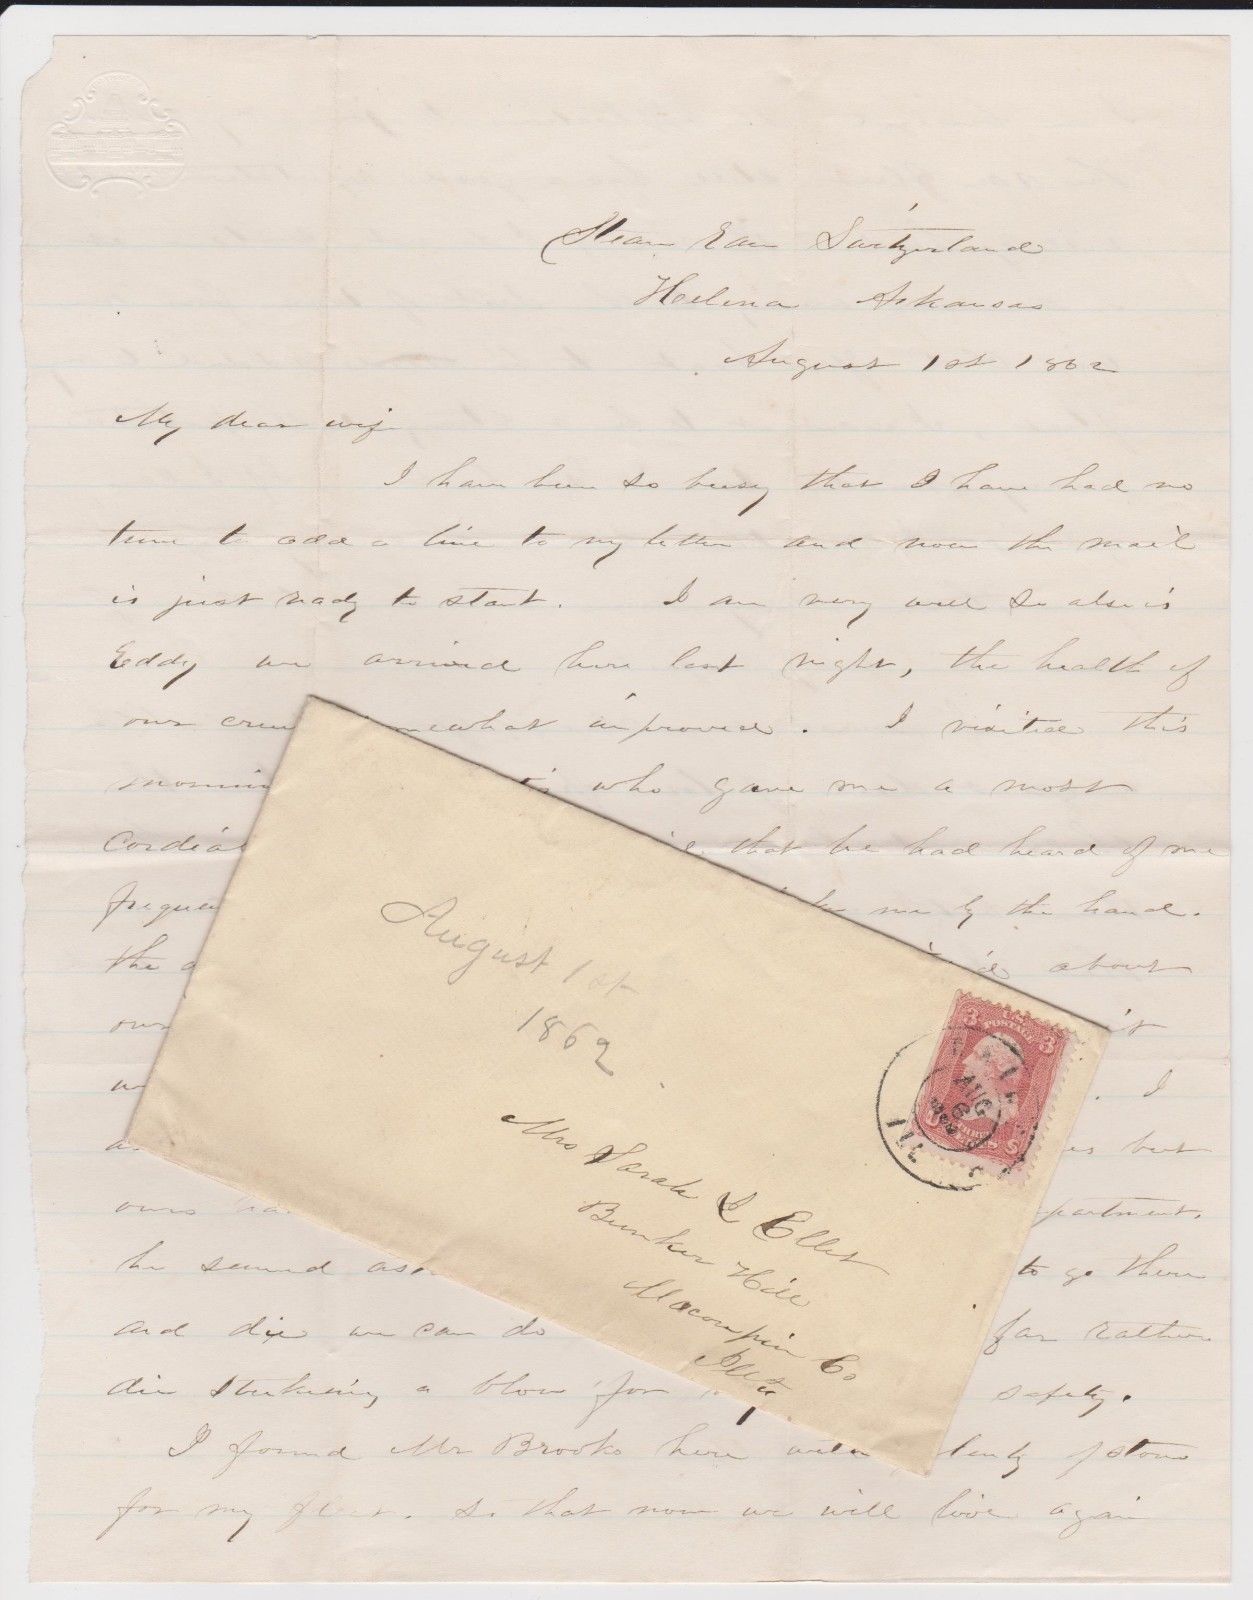 Steam Ram Switzerland
Helena Arkansas
August 1st 1862
My dear wife
I have been so busy that I have had no
time to add a line to my letter and now the mail
is just ready to start. I am very well so also is
Eddy we arrived here last night, the health of
our crew somewhat improved. I visited this
mornin who gave me a most
Cordial that he had heard of me
freque me by the hand.
the about
our it
I
but
ours partment.
he seemed to go there
and die we can do far rather
die strikeing a blow for safety.
I found Mr Brooks here with plenty of stores
for my fleet. So that now we will live again
August 1st
1862
Mrs Sarah I Ellet
Bunker Hill
Macoupin Co
Ills
3 U.S. POSTAGE 3
AUG
6
ILL